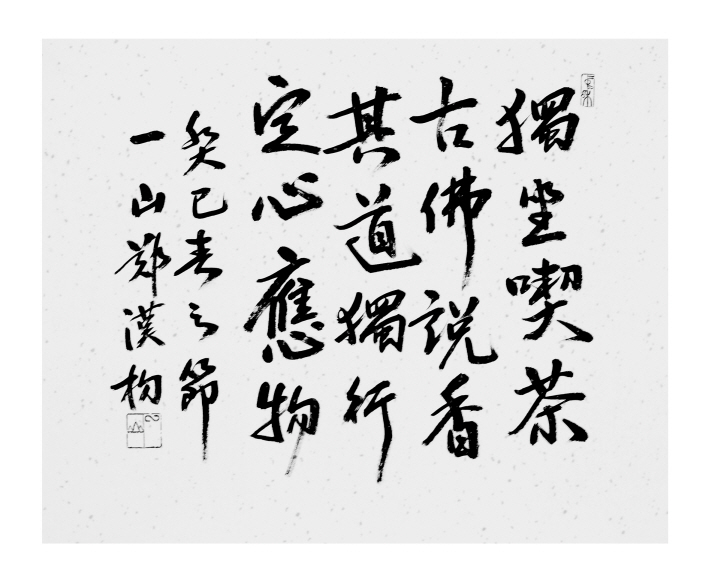 獨坐喫茶
古佛説香
其道獨行
定心應物
癸巳春之節
一山鄭漢